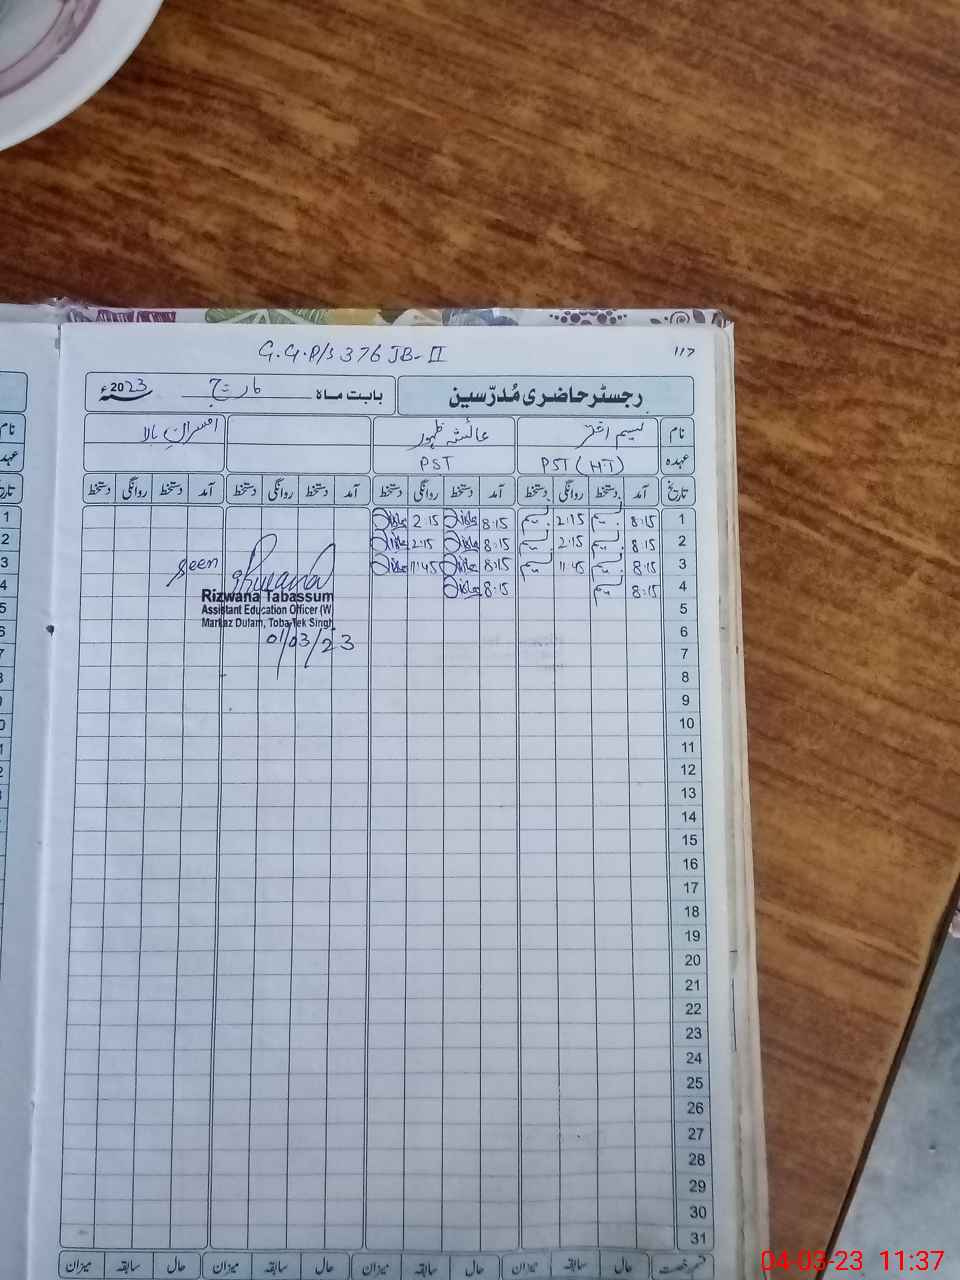 G.G.P/S 376 JB-II
117
رجسٹر حاضری مُدرّسین
بابت ماہ مارچ 2023ء
نام نسیم اختر عائشہ ظہور افسران بالا
عہدہ PST (HT) PST
تاریخ آمد دستخط روانگی دستخط آمد دستخط روانگی دستخط آمد دستخط روانگی دستخط آمد دستخط روانگی دستخط
1 8:15 نسیم 2:15 نسیم 8:15 2:15
2 8:15 نسیم 2:15 نسیم 8:15 2:15
3 8:15 نسیم 11:45 نسیم 8:15 11:45
4 8:15 نسیم 8:15
seen
Rizwana
Rizwana Tabassum
Assistant Education Officer (W)
Markaz Dulam, Toba Tek Singh
01/03/23
5
6
7
8
9
10
11
12
13
14
15
16
17
18
19
20
21
22
23
24
25
26
27
28
29
30
31
حال سابقہ میزان حال سابقہ میزان حال سابقہ میزان حال سابقہ میزان
04-03-23 11:37